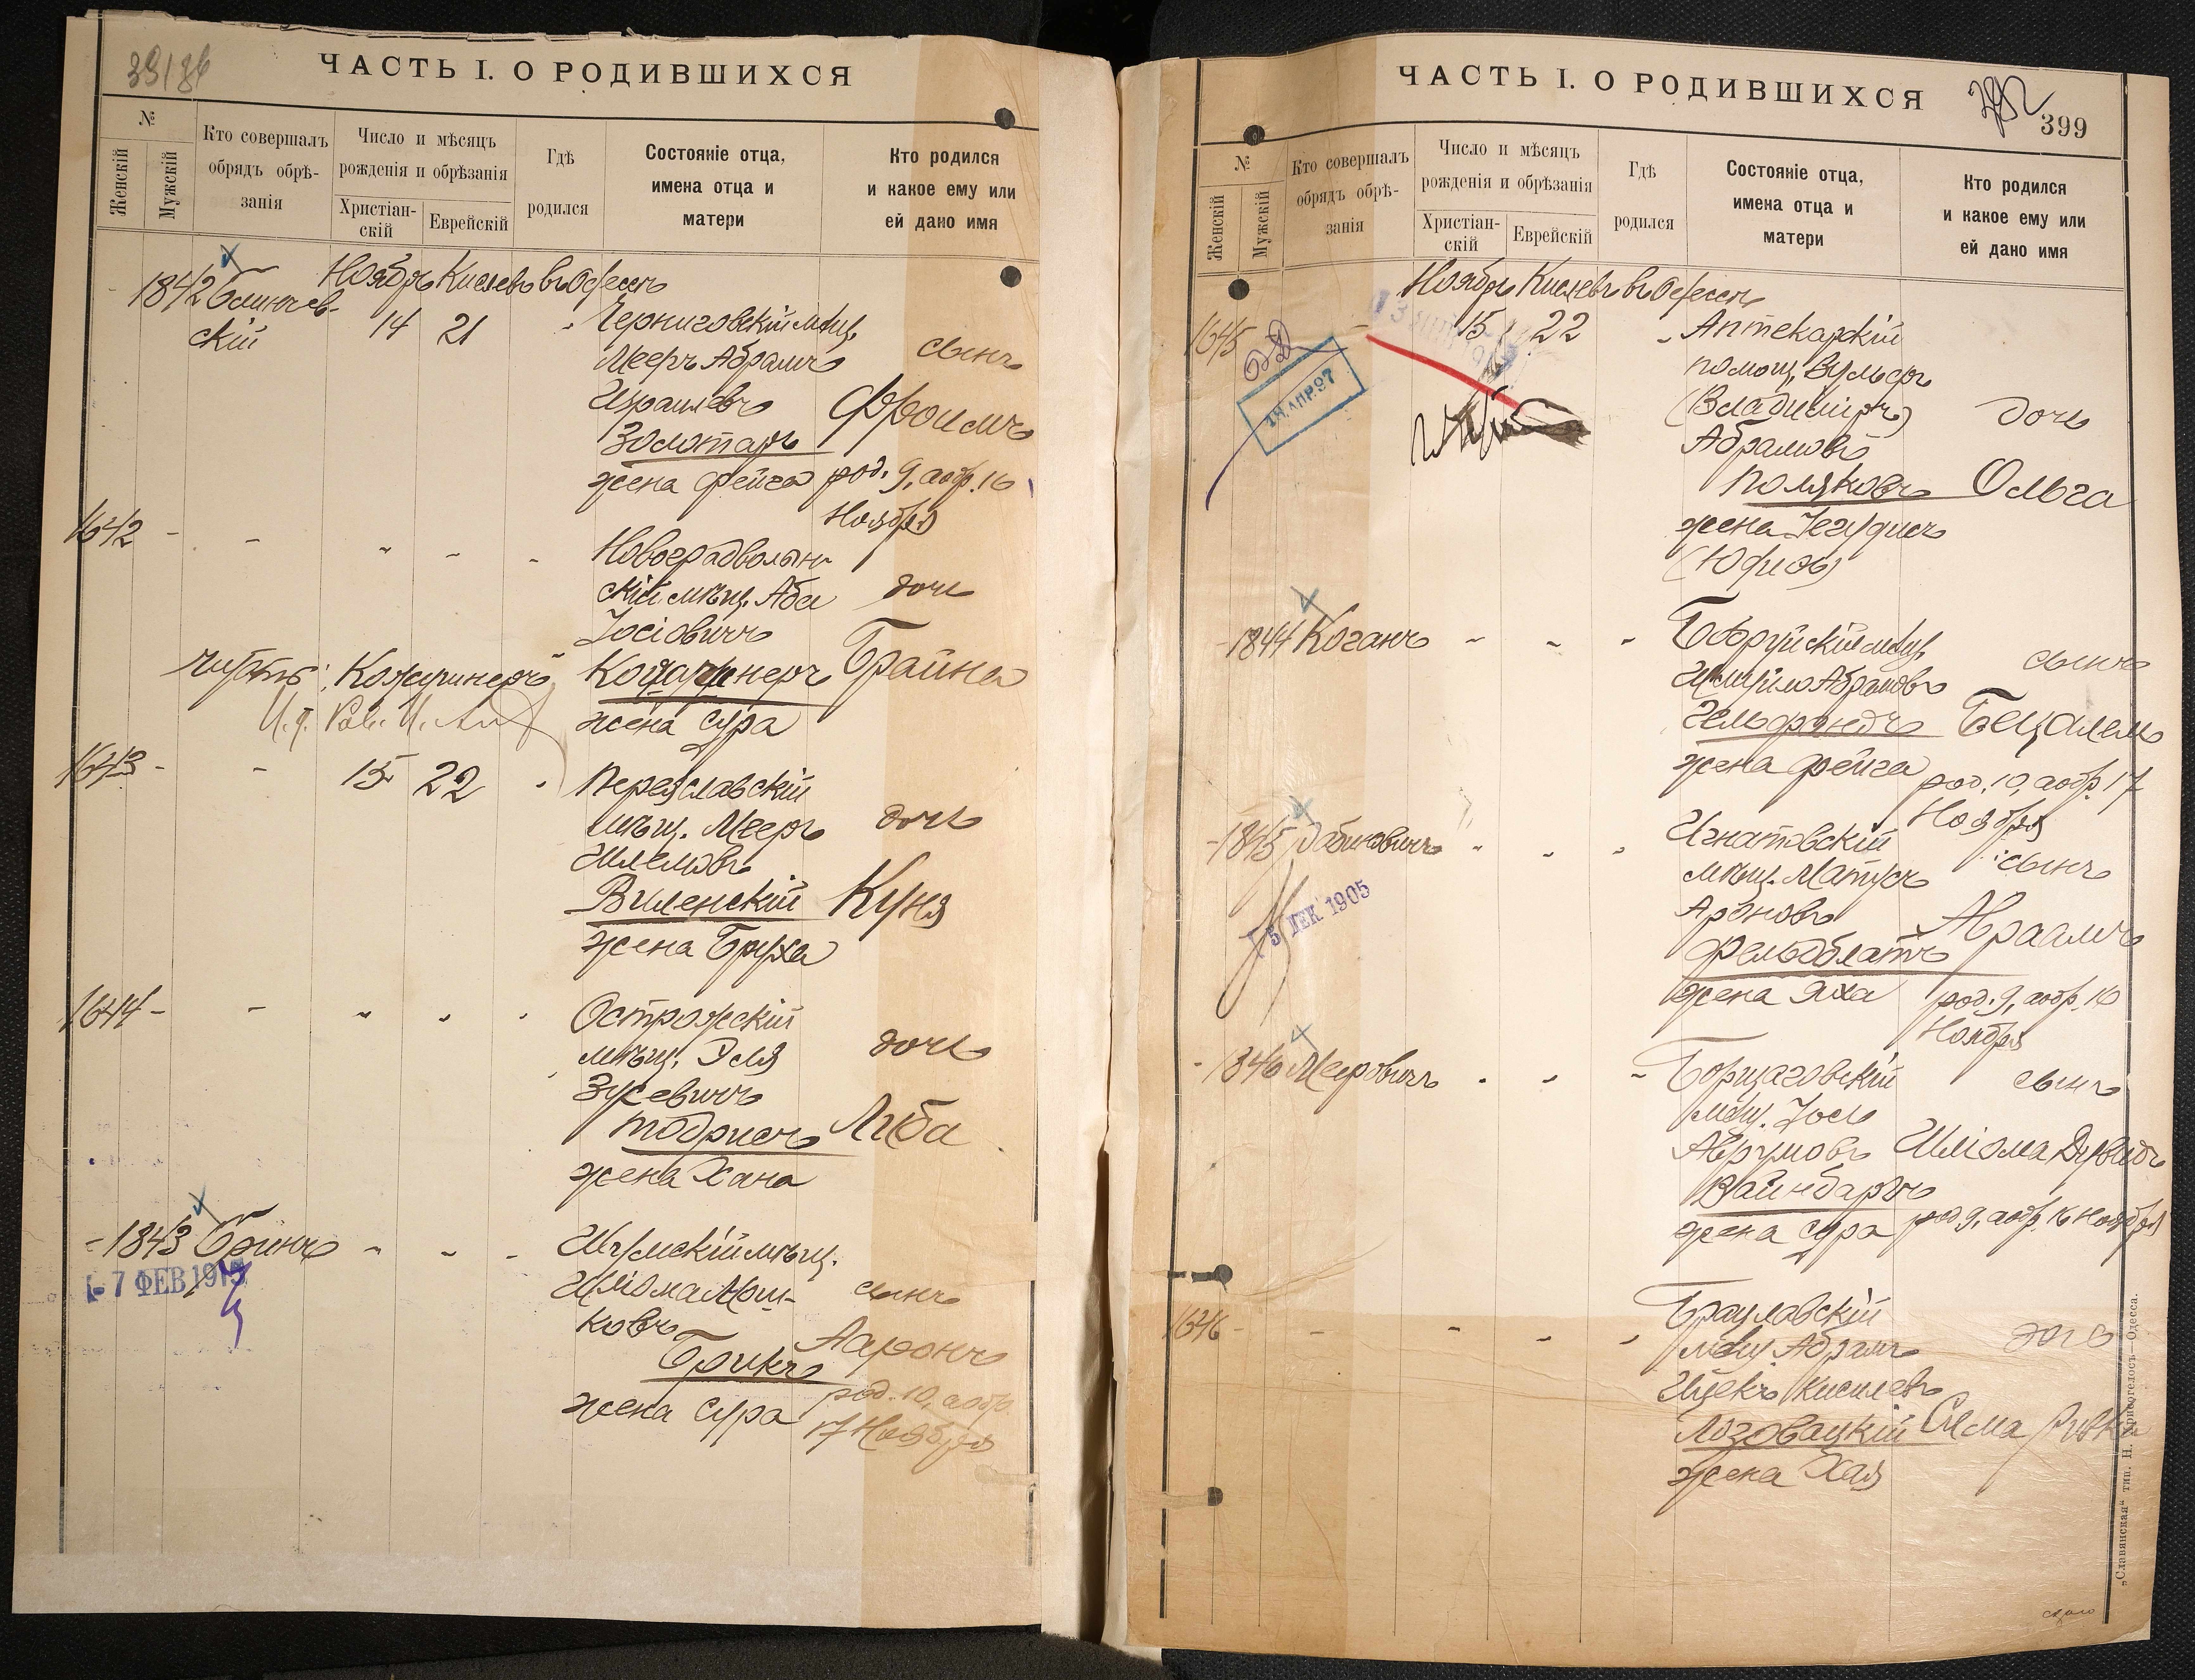 ЧАСТЬ I. О РОДИВШИХСЯ
№
Женскій
Мужскій
Кто совершалъ
обрядъ обрѣ-
занія
Число и мѣсяцъ
рожденія и обрѣзанія
Христіан-
скій
Еврейскій
Гдѣ
родился
Состояніе отца,
имена отца и
матери
Кто родился
и какое ему или
ей дано имя
Ноябрь Кислевъ въ Одессѣ
1842
скій
14 21
Черниговскій мѣщ.
Мееръ Абрамъ
Израилевъ
Золотарь
жена Фейга
сынъ
Фроимъ
род. 9, аобр. 16
Ноября
1642
Новоградволын-
скій мѣщ. Аба
Іосіовичъ
жена Сура
дочь
Брайна
1643
15 22
Переяславскій
мѣщ. Мееръ
Шлемовъ
Виленскій
жена Бруха
дочь
Куня
1644
Острожскій
мѣщ. Эля
Зусевичъ
Тодрисъ
жена Хана
дочь
Либа
1843
7 ФЕВ
Шумскій мѣщ.
Шліома Мош-
ковъ
Брикъ
жена Сура
сынъ
Ааронъ
род. 10, аобр.
17 Ноября
ЧАСТЬ I. О РОДИВШИХСЯ
399
№
Женскій
Мужскій
Кто совершалъ
обрядъ обрѣ-
занія
Число и мѣсяцъ
рожденія и обрѣзанія
Христіан-
скій
Еврейскій
Гдѣ
родился
Состояніе отца,
имена отца и
матери
Кто родился
и какое ему или
ей дано имя
Ноябрь Кислевъ въ Одессѣ
1645
14 АПР. 97
15 22
Аптекарскій
помощ. Вульфъ
(Владиміръ)
Абрамовъ
Поляковъ
жена Іегудисъ
(Юдифь)
дочь
Ольга
1844 Коганъ
Бобруйскій мѣщ.
Шмуйло Абрамовъ
Гельфандъ
жена Фейга
сынъ
Бецалель
род. 10, аобр. 17
Ноября
1845 Рабиновичъ
5 ДЕК 1905
Игнатовскій
мѣщ. Матусъ
Ароновъ
Фельдблатъ
жена Яха
сынъ
Абраамъ
род. 9, аобр. 16
Ноября
1846 Меировичъ
Борщаговскій
мѣщ. Іось
Аврумовъ
Вайнбаргъ
жена Сура
сынъ
Шліома Дувидъ
род. 9, аобр. 16 Ноября
1646
Брацлавскій
мѣщ. Абрамъ
Ицекъ Кисилевъ
Лозовацкій
жена Хая
дочь
Сима Ривка
„Славянская“ тип. Н. Хрисогелосъ—Одесса.